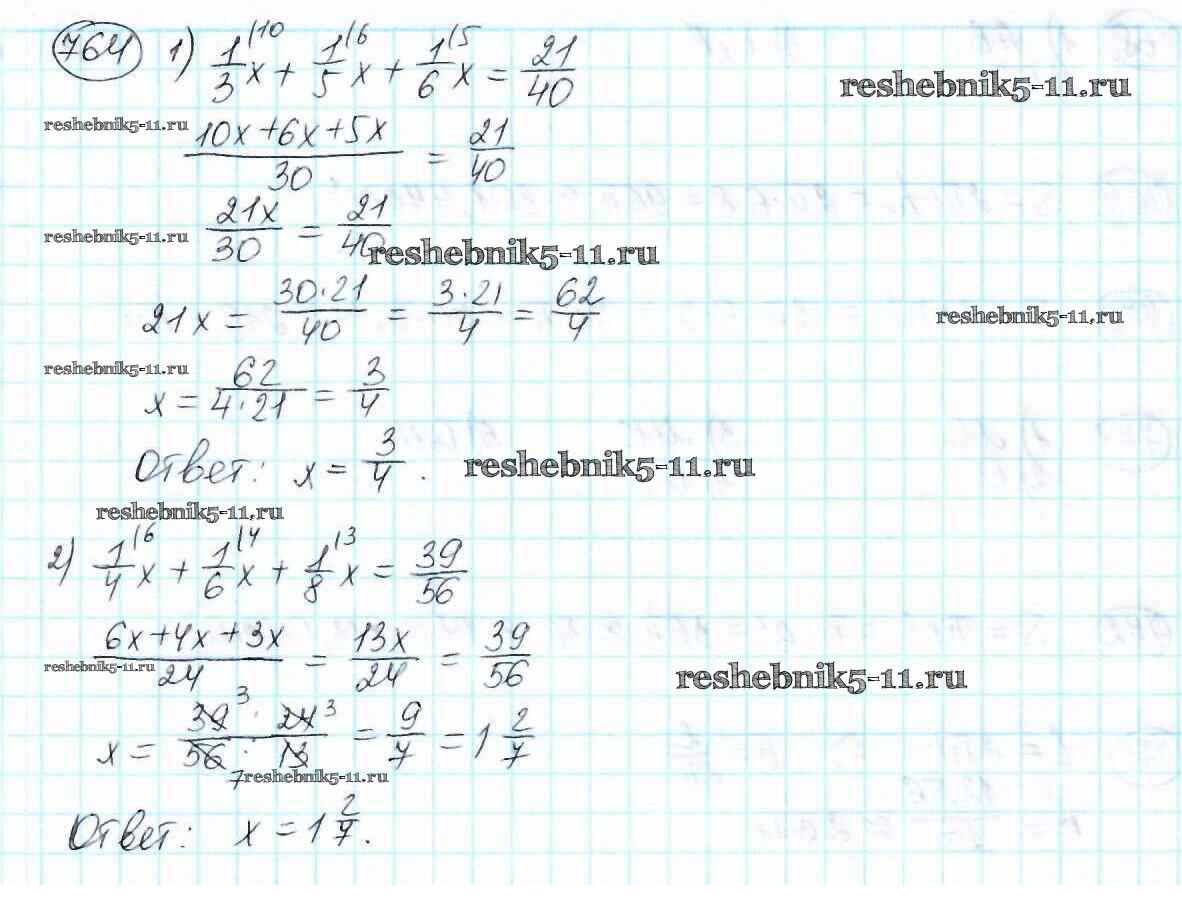 764 1) 1/3 |10 x + 1/5 |6 x + 1/6 |5 x = 21/40
resheb­nik5-11.ru
reshebnik5-11.ru
(10x+6x+5x)/30 = 21/40
21x/30 = 21/40
reshebnik5-11.ru
reshebnik5-11.ru
21x = 30·21/40 = 3·21/4 = 62/4
reshebnik5-11.ru
reshebnik5-11.ru
x = 62/(4·21) = 3/4
Ответ: x = 3/4.
reshebnik5-11.ru
reshebnik5-11.ru
2) 1/4 |6 x + 1/6 |4 x + 1/8 |3 x = 39/56
(6x+4x+3x)/24 = 13x/24 = 39/56
reshebnik5-11.ru
reshebnik5-11.ru
x = (39 3 · 24 3)/(56 7 · 13) = 9/7 = 1 2/7
reshebnik5-11.ru
Ответ: x = 1 2/7.